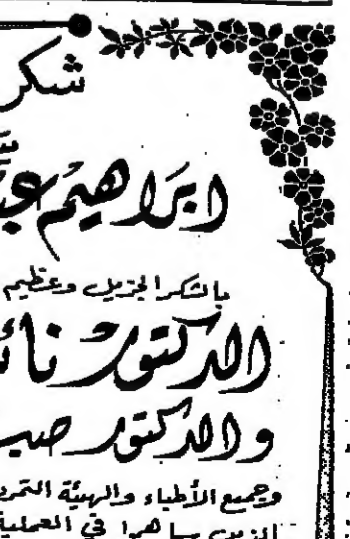 شكر
ابراهيم
بالشكر الجزيل وعظيم
الدكتور
والدكتور
وجميع الأطباء والهيئة
الذين ساهموا في العملية